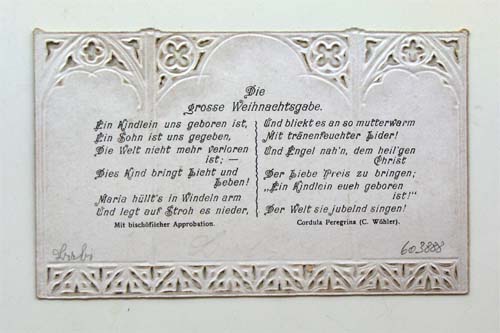 Die
grosse Weihnachtsgabe.
Ein Kindlein uns geboren ist,
Ein Sohn ist uns gegeben,
Die Welt nicht mehr verloren
ist; —
Dies Kind bringt Licht und
Leben!
Maria hüllt's in Windeln arm
Und legt auf Stroh es nieder,
Mit bischöflicher Approbation.
Und blickt es an so mutterwarm
Mit tränenfeuchter Lider!
Und Engel nah'n, dem heil'gen
Christ
Der Liebe Preis zu bringen;
„Ein Kindlein eueh geboren
ist!"
Der Welt sie jubelnd singen!
Cordula Peregrina (C. Wöhler).
603888